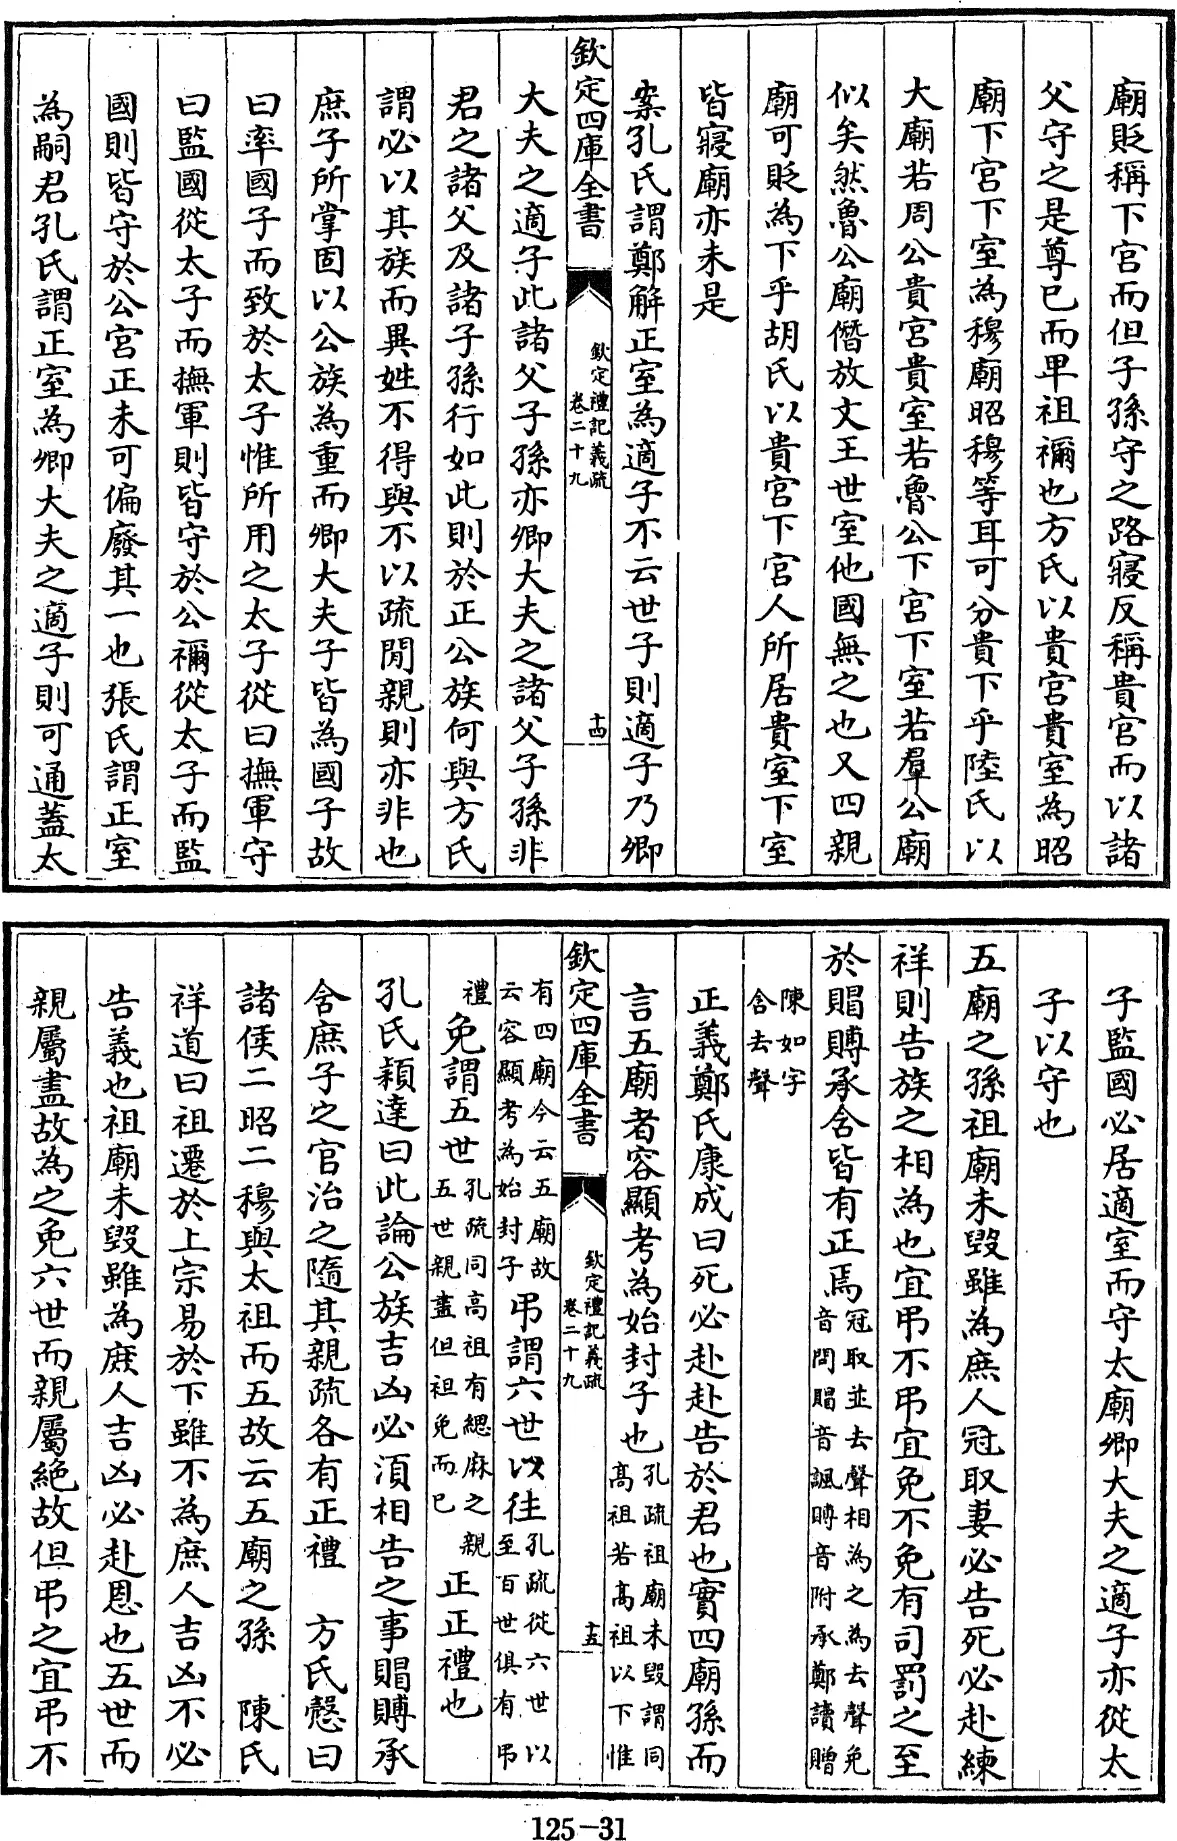 廟貶稱下宫而但子孫守之路寢反稱貴宫而以諸
父守之是尊已而卑祖禰也方氏以貴宫貴室為昭
廟下宫下室為穆廟昭穆等耳可分貴下乎陸氏以
大廟若周公貴宫貴室若魯公下宫下室若羣公廟
似矣然魯公廟僭放文王世室他國無之也又四親
廟可貶為下乎胡氏以貴宫下宫人所居貴室下室
皆寢廟亦未是
案孔氏謂鄭解正室為適子不云世子則適子乃卿
欽定四庫全書
欽定禮記義疏
卷二十九
十四
大夫之適子此諸父子孫亦卿大夫之諸父子孫非
君之諸父及諸子孫行如此則於正公族何與方氏
謂必以其族而異姓不得與不以疏閒親則亦非也
庶子所掌固以公族為重而卿大夫子皆為國子故
曰率國子而致於太子惟所用之太子從曰撫軍守
曰監國從太子而撫軍則皆守於公禰從太子而監
國則皆守於公宫正未可偏廢其一也張氏謂正室
為嗣君孔氏謂正室為卿大夫之適子則可通蓋太
子監國必居適室而守太廟卿大夫之適子亦從太
子以守也
五廟之孫祖廟未毁雖為庶人冠取妻必告死必赴練
祥則告族之相為也宜弔不弔宜免不免有司罰之至
於賵賻承含皆有正焉
冠取並去聲相為之為去聲免
音問賵音諷賻音附承鄭讀贈
陳如字
含去聲
正義鄭氏康成曰死必赴赴告於君也實四廟孫而
言五廟者容顯考為始封子也
孔疏祖廟未毁謂同
高祖若高祖以下惟
欽定四庫全書
欽定禮記義疏
卷二十九
十五
有四廟今云五廟故
云容顯考為始封子
弔謂六世以往
孔疏從六世以
至百世俱有弔
禮
免謂五世
孔疏同高祖有緦麻之親
五世親盡但袒免而已
正正禮也
孔氏穎達曰此論公族吉凶必須相告之事賵賻承
含庶子之官治之隨其親疏各有正禮 方氏慤曰
諸侯二昭二穆與太祖而五故云五廟之孫 陳氏
祥道曰祖遷於上宗易於下雖不為庶人吉凶不必
告義也祖廟未毁雖為庶人吉凶必赴恩也五世而
親屬盡故為之免六世而親屬絶故但弔之宜弔不
125-31